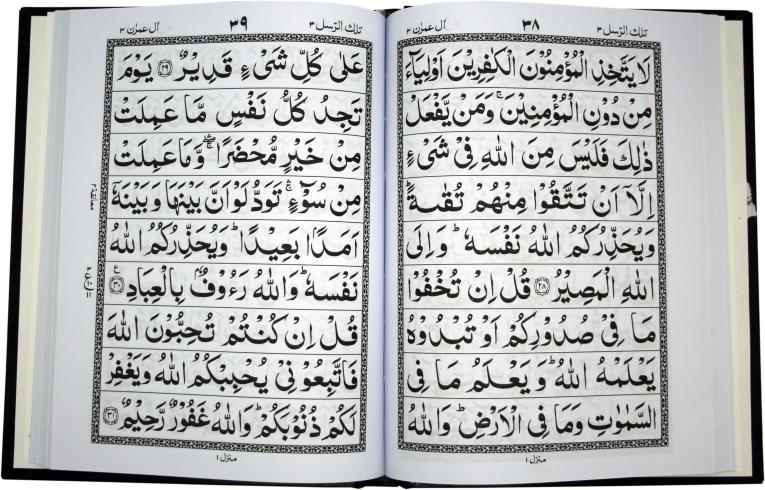 تلك الرّسل ٣
٣٨
اٰل عمرٰن ٣
لَا يَتَّخِذِ الْمُؤْمِنُوْنَ الْكٰفِرِيْنَ اَوْلِيَآءَ
مِنْ دُوْنِ الْمُؤْمِنِيْنَ ۚ وَمَنْ يَّفْعَلْ
ذٰلِكَ فَلَيْسَ مِنَ اللّٰهِ فِيْ شَيْءٍ
اِلَّاۤ اَنْ تَتَّقُوْا مِنْهُمْ تُقٰىةً ؕ
وَيُحَذِّرُكُمُ اللّٰهُ نَفْسَهٗ ؕ وَاِلَى
اللّٰهِ الْمَصِيْرُ ﴿۲۸﴾ قُلْ اِنْ تُخْفُوْا
مَا فِيْ صُدُوْرِكُمْ اَوْ تُبْدُوْهُ
يَعْلَمْهُ اللّٰهُ ؕ وَيَعْلَمُ مَا فِى
السَّمٰوٰتِ وَمَا فِى الْاَرْضِ ؕ وَاللّٰهُ
منزل ١
تلك الرّسل ٣
٣٩
اٰل عمرٰن ٣
عَلٰى كُلِّ شَيْءٍ قَدِيْرٌ ﴿۲۹﴾ يَوْمَ
تَجِدُ كُلُّ نَفْسٍ مَّا عَمِلَتْ
مِنْ خَيْرٍ مُّحْضَرًا ۛۖۚ وَّمَا عَمِلَتْ
مِنْ سُوْٓءٍ ۛۚ تَوَدُّ لَوْ اَنَّ بَيْنَهَا وَبَيْنَهٗۤ
اَمَدًۢا بَعِيْدًا ؕ وَيُحَذِّرُكُمُ اللّٰهُ
نَفْسَهٗ ؕ وَاللّٰهُ رَءُوْفٌۢ بِالْعِبَادِ ﴿۳۰﴾
قُلْ اِنْ كُنْتُمْ تُحِبُّوْنَ اللّٰهَ
فَاتَّبِعُوْنِيْ يُحْبِبْكُمُ اللّٰهُ وَيَغْفِرْ
لَكُمْ ذُنُوْبَكُمْ ؕ وَاللّٰهُ غَفُوْرٌ رَّحِيْمٌ ﴿۳۱﴾
منزل ١